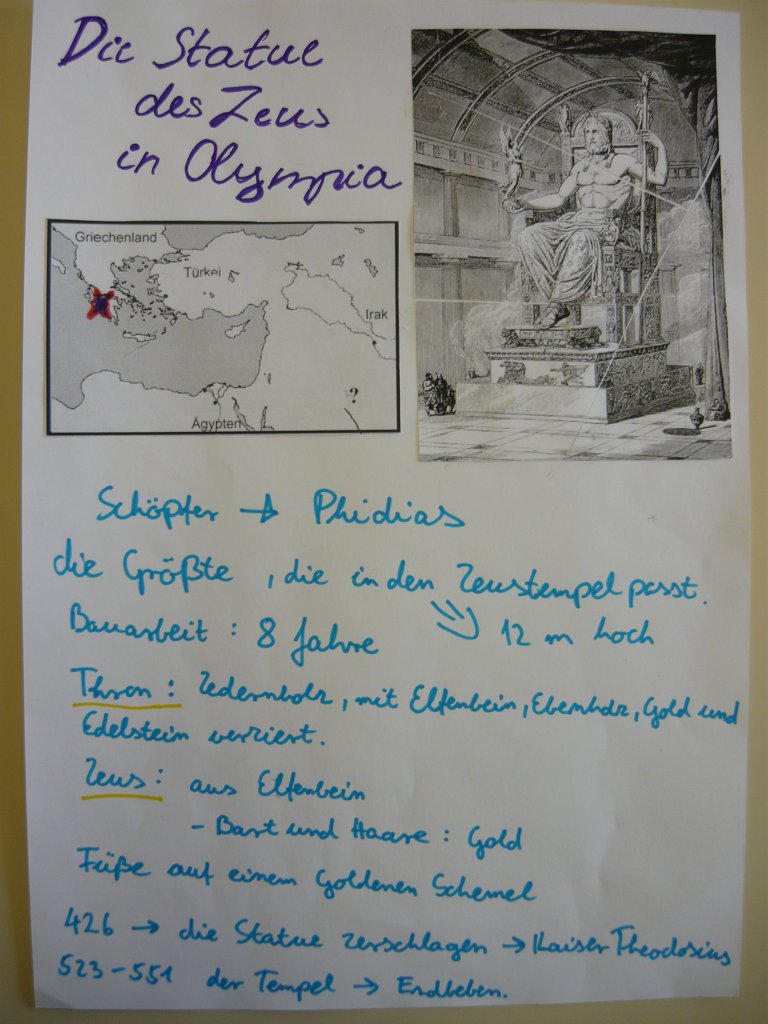 Die Statue
des Zeus
in Olympia
Griechenland
Türkei
Irak
?
Ägypten
Schöpfer → Phidias
die Größte, die in den Zeustempel passt.
Bauarbeit : 8 Jahre ⇒ 12 m hoch
Thron : Zedernholz, mit Elfenbein, Ebenholz, Gold und
Edelstein verziert.
Zeus : aus Elfenbein
- Bart und Haare : Gold
Füße auf einem Goldenen Schemel
426 → die Statue zerschlagen → Kaiser Theodosius
523-551 der Tempel → Erdbeben.